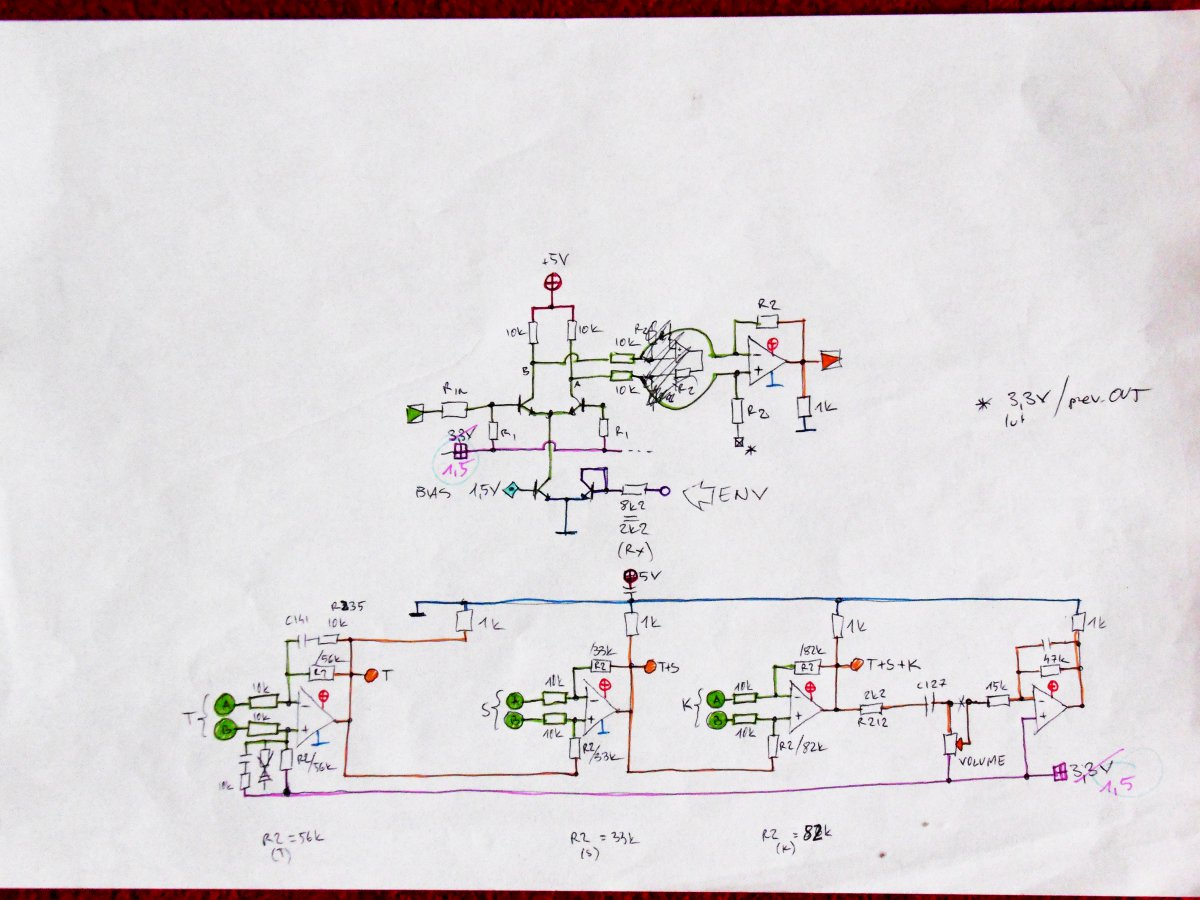 +5V
10k
10k
R2
10k
B
A
10k
R2
RIN
R2
1k
* 3,3V/prev. OUT
R1
R1
3,3V
1,5
*
BIAS 1,5V
ENV
8k2
2k2
(Rx)
5V
C141
R235
10k
1k
1k
1k
1k
/56k
R2
T
/33k
R2
T+S
/82k
R2
T+S+K
47k
T
A
10k
B
10k
S
A
10k
B
10k
K
A
10k
B
10k
2k2
R212
C127
x
15k
R2/56k
R2/33k
R2/82k
VOLUME
10k
3,3V
1,5
R2 = 56k
(T)
R2 = 33k
(S)
R2 = 82k
(K)